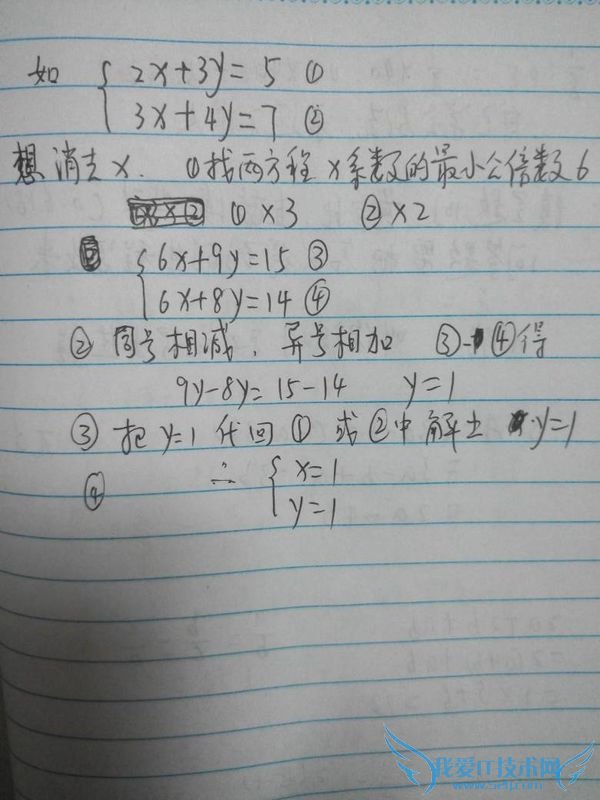 如 { 2x+3y=5 ①
3x+4y=7 ②
想消去x. ①找两方程x系数的最小公倍数6
①×3 ②×2
{ 6x+9y=15 ③
6x+8y=14 ④
② 同号相减, 异号相加 ③-④得
9y-8y=15-14 y=1
③ 把y=1代回①或②中解出 y=1
④ ∴ { x=1
y=1
我爱IT技术网